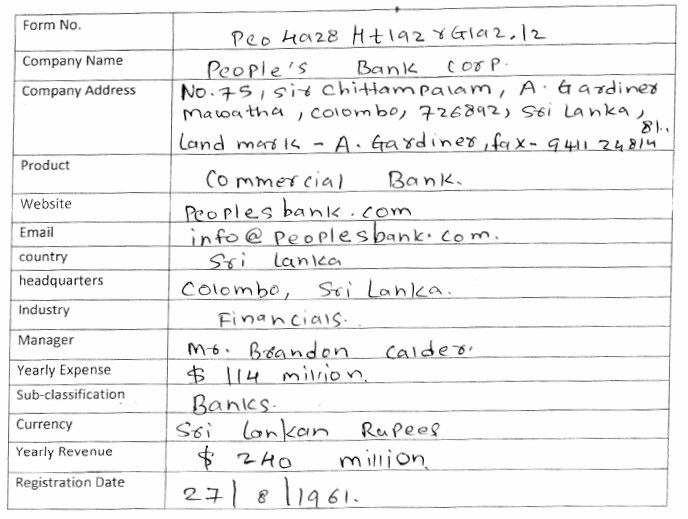 Form No. Peo 4a28 Htlaz rGlaz.12
Company Name People's Bank Corp.
Company Address No.75, Sir Chittampalam, A. Gardiner
Mawatha, Colombo, 726892, Sri Lanka,
Land mark - A. Gardiner, fax- 9411 24814
81..
Product Commercial Bank.
Website Peoplesbank.com
Email info@peoplesbank.com.
country Sri Lanka
headquarters Colombo, Sri Lanka.
Industry Financials.
Manager Mr. Brandon Calder.
Yearly Expense $ 114 million.
Sub-classification Banks.
Currency Sri Lankan Rupees
Yearly Revenue $ 240 million
Registration Date 27/8/1961.